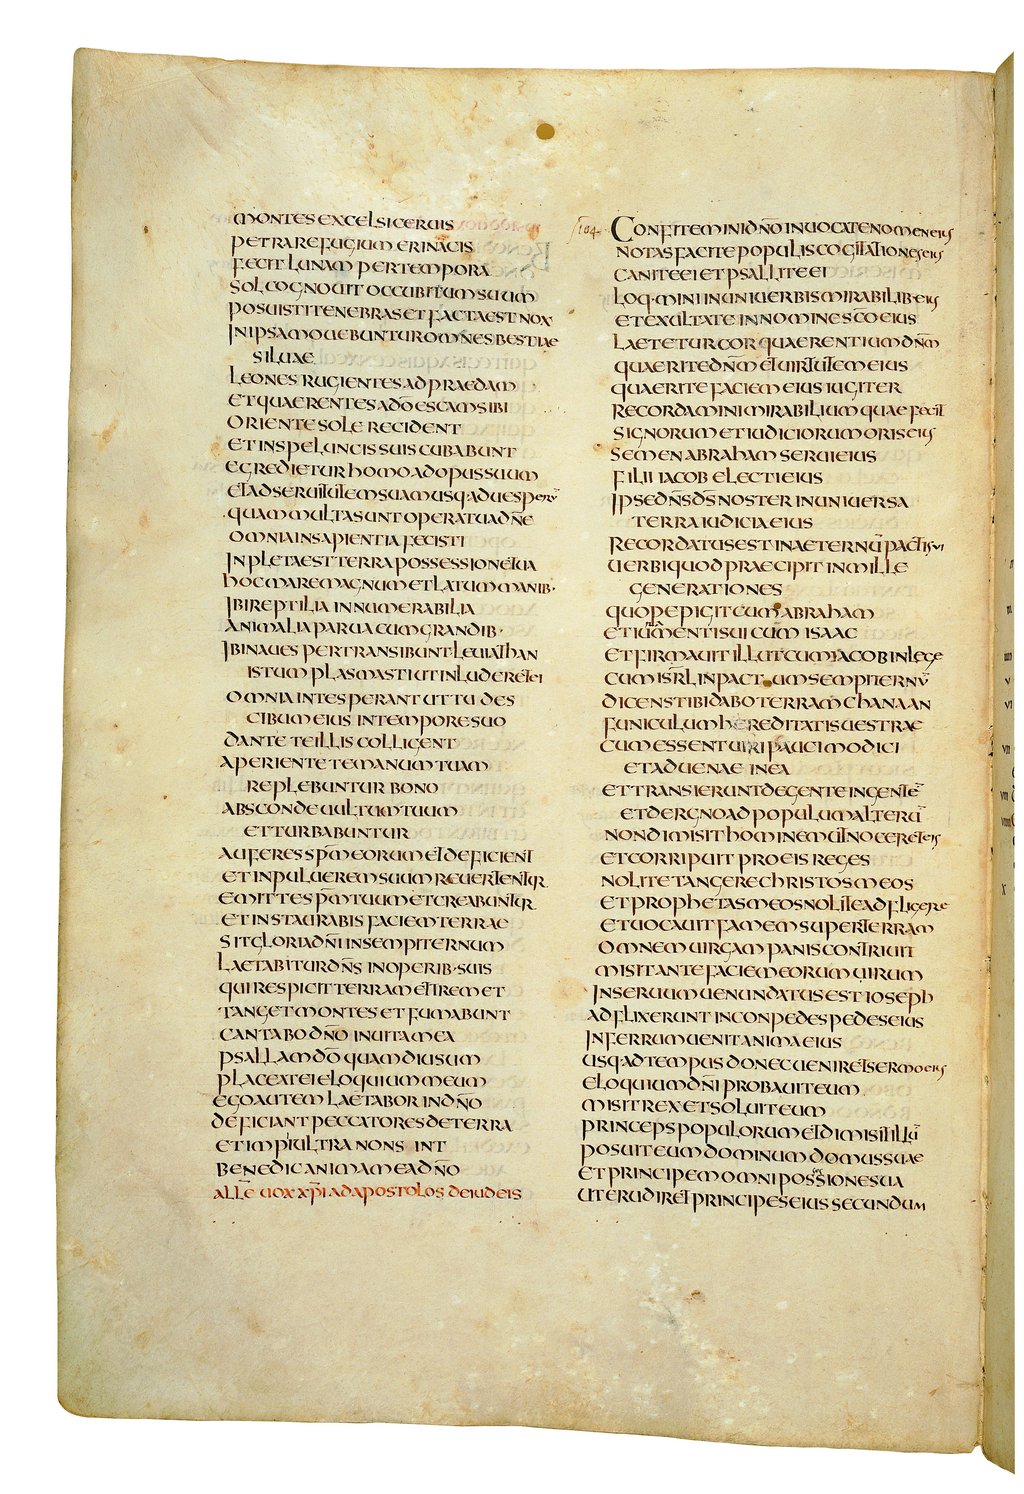 MONTES EXCELSI CERUIS
PETRA REFUGIUM ERINACIS
FECIT LUNAM PER TEMPORA
SOL COGNOUIT OCCUBITUM SUUM
POSUISTI TENEBRAS ET FACTA EST NOX
IN IPSA MOUEBUNTUR OMNES BESTIAE
SILUAE
LEONES RUGIENTES AD PRAEDAM
ET QUAERENTES A DŌ ESCAM SIBI
ORIENTE SOLE RECIDENT
ET IN SPELUNCIS SUIS CUBABUNT
EGREDIETUR HOMO AD OPUS SUUM
ET AD SERUITUTEM SUAM USQ· AD UESPERŪ
QUAM MULTA SUNT OPERA TUA DÑE
OMNIA IN SAPIENTIA FECISTI
INPLETA EST TERRA POSSESSIONE TUA
HOC MARE MAGNUM ET LATUM MANIB·
IBI REPTILIA INNUMERABILIA
ANIMALIA PARUA CUM GRANDIB·
IBI NAUES PERTRANSIBUNT LEUIATHAN
ISTUM PLASMASTI UT INLUDERET EI
OMNIA IN TE SPERANT UT TU DES
CIBUM EIUS IN TEMPORE SUO
DANTE TE ILLIS COLLIGENT
APERIENTE TE MANUM TUAM
REPLEBUNTUR BONO
ABSCONDE UULTUM TUUM
ET TURBABUNTUR
AUFERES SPM̄ EORUM ET DEFICIENT
ET IN PULUEREM SUUM REUERTENTUR
EMITTE SPM̄ TUUM ET CREABUNTUR
ET INSTAURABIS FACIEM TERRAE
SIT GLORIA DÑI IN SEMPITERNUM
LAETABITUR DÑS IN OPERIB· SUIS
QUI RESPICIT TERRAM ET TREMET
TANGET MONTES ET FUMABUNT
CANTABO DÑO IN UITA MEA
PSALLAM DŌ QUAMDIU SUM
PLACEAT EI ELOQUIUM MEUM
EGO AUTEM LAETABOR IN DÑO
DEFICIANT PECCATORES DE TERRA
ET IMPII ULTRA NON SINT
BENEDIC ANIMA MEA DÑO
ALLĒ UOX XPI AD APOSTOLOS DE IUDEIS
104 CONFITEMINI DÑO INUOCATE NOMEN EIUS
NOTAS FACITE POPULIS COGITATIONES EIUS
CANITE EI ET PSALLITE EI
LOQ·MINI IN UNIUERBIS MIRABILIB· EIUS
ET EXULTATE IN NOMINE SCO EIUS
LAETETUR COR QUAERENTIUM DÑM
QUAERITE DÑM ET UIRTUTEM EIUS
QUAERITE FACIEM EIUS IUGITER
RECORDAMINI MIRABILIUM QUAE FECIT
SIGNORUM ET IUDICIORUM ORIS EIUS
SEMEN ABRAHAM SERUI EIUS
FILII IACOB ELECTI EIUS
IPSE DÑS DS̄ NOSTER IN UNIUERSA
TERRA IUDICIA EIUS
RECORDATUS EST IN AETERNŪ PACTI SUI
UERBI QUOD PRAECIPIT IN MILLE
GENERATIONES
QUO PEPIGIT CUM ABRAHAM
ET IURAMENTI SUI CUM ISAAC
ET FIRMAUIT ILLUT CUM IACOB IN LEGE
CUM ISRL̄ IN PACTUM SEMPITERNŪ
DICENS TIBI DABO TERRAM CHANAAN
FUNICULUM HEREDITATIS UESTRAE
CUM ESSENT UIRI PAUCI MODICI
ET ADUENAE IN EA
ET TRANSIERUNT DE GENTE IN GENTĒ
ET DE RGNO AD POPULUM ALTERŪ
NON DIMISIT HOMINEM UT NOCERET EIS
ET CORRIPUIT PRO EIS REGES
NOLITE TANGERE CHRISTOS MEOS
ET PROPHETAS MEOS NOLITE ADFLIGERE
ET UOCAUIT FAMEM SUPER TERRAM
OMNEM UIRGAM PANIS CONTRIUIT
MISIT ANTE FACIEM EORUM UIRUM
IN SERUUM UENUNDATUS EST IOSEPH
ADFLIXERUNT IN CONPEDES PEDES EIUS
IN FERRUM UENIT ANIMA EIUS
USQ· AD TEMPUS DONEC UENIRET SERMO EIUS
ELOQUIUM DÑI PROBAUIT EUM
MISIT REX ET SOLUIT EUM
PRINCEPS POPULORUM ET DIMISIT ILLŪ
POSUIT EUM DOMINUM DOMUS SUAE
ET PRINCIPEM OMNI POSSESSIONE SUA
UT ERUDIRET PRINCIPES EIUS SECUNDUM